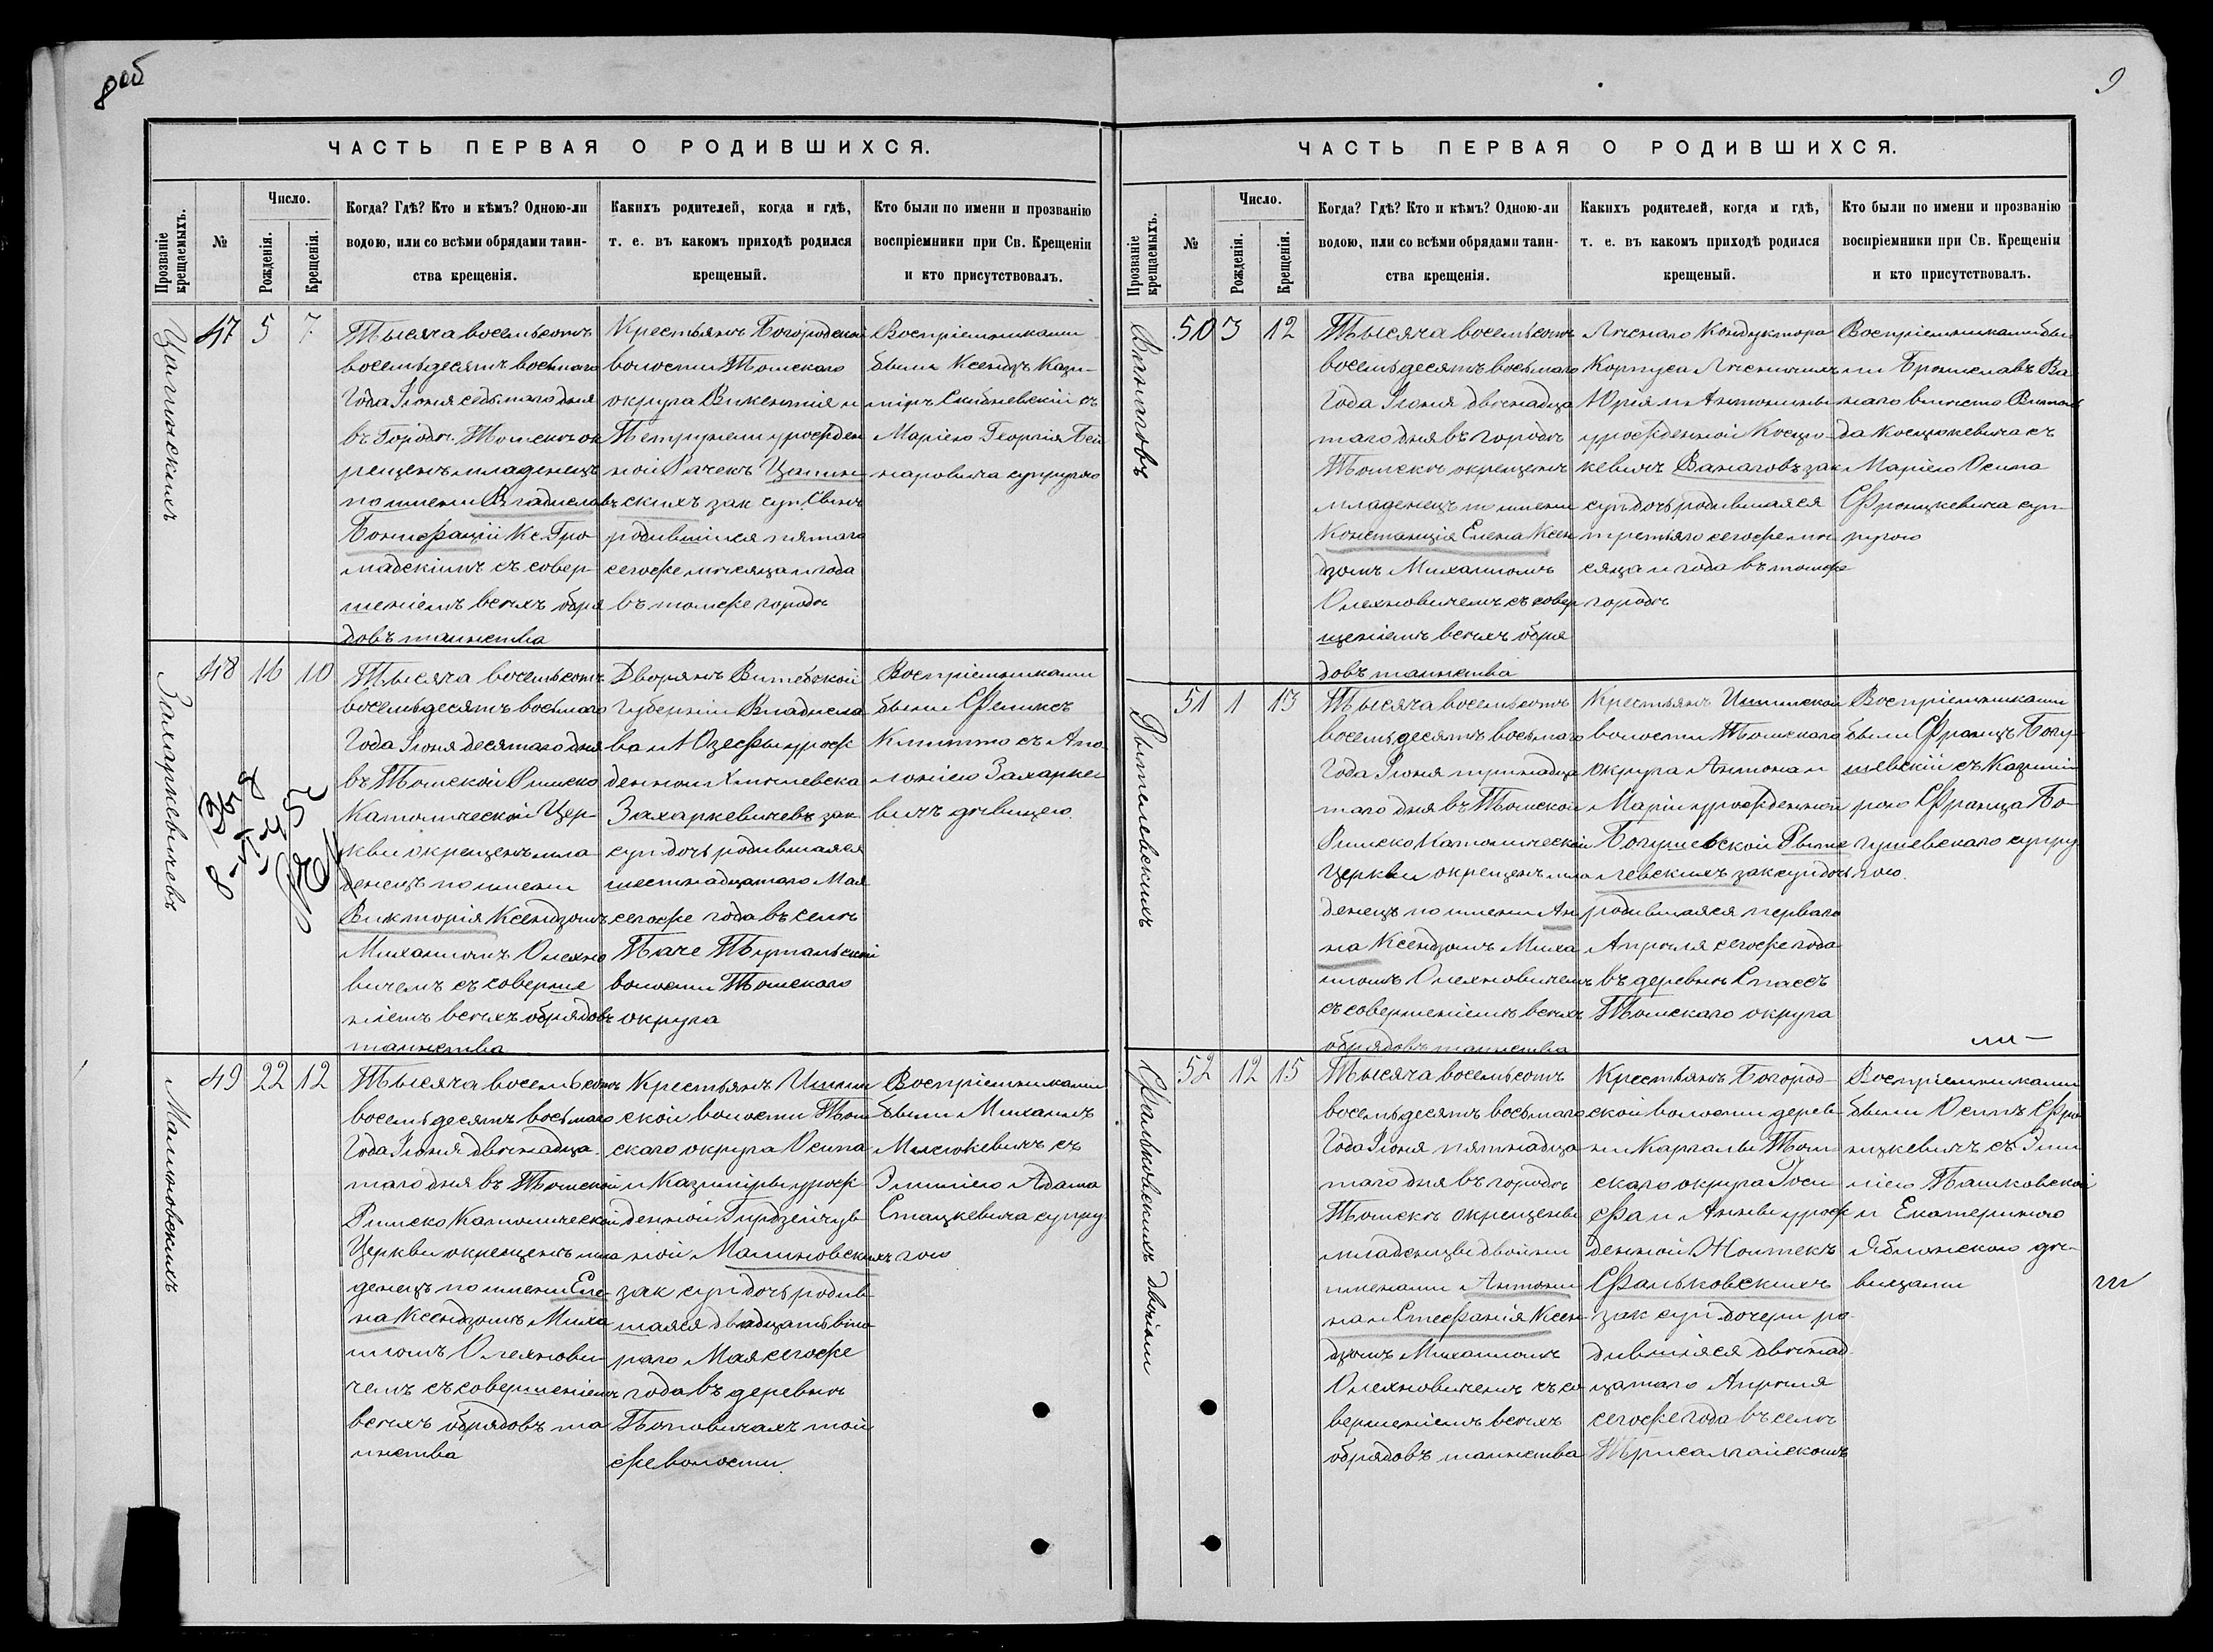 8об
ЧАСТЬ ПЕРВАЯ О РОДИВШИХСЯ.
Прозваніе крещаемыхъ.
№
Число.
Рожденія.
Крещенія.
Когда? Гдѣ? Кто и кѣмъ? Одною-ли
водою, или со всѣми обрядами таин-
ства крещенія.
Какихъ родителей, когда и гдѣ,
т. е. въ какомъ приходѣ родился
крещеный.
Кто были по имени и прозванію
воспріемники при Св. Крещеніи
и кто присутствовалъ.
47 5 7
Тысяча восемьсотъ
восемьдесятъ восьмаго
Года Іюня седьмаго дня
въ Городѣ Томскѣ ок
рещенъ младенецъ
по имени Владиславъ
Бонифацій Кс. Гро-
мадскимъ съ совер-
шеніемъ всѣхъ обря
довъ таинства
Крестьянъ Богородской
волости Томскаго
округа Викентія и
Петрунели урожден
ной Рачекъ Цапин-
скихъ зак суп Сынъ
родившійся пятаго
сегоже мѣсяца и года
въ томже городѣ
Воспріемниками
были Ксендзъ Кази-
міръ Скибневскій съ
Маріею Георгія Бей
наровича супругою
Захаркевичевъ
48 16 10
Тысяча восемьсотъ
восемьдесятъ восьмаго
Года Іюня десятаго дня
въ Томской Римско
Католической Цер-
кви окрещенъ мла-
денецъ по имени
Викторія Ксендзомъ
Михаиломъ Олехно
вичемъ съ соверше
ніемъ всѣхъ обрядовъ
таинства
Дворянъ Витебской
Губерніи Владисла
ва и Юзефы урож
денной Хмѣлевска
Захаркевичевъ зак
суп дочь родившаяся
шестнадцатаго Мая
сегоже года въ селѣ
Паче Тутальской
волости Томскаго
округа
Воспріемниками
были Феликсъ
Климто съ Апо-
лоніею Захарке-
вичъ дѣвицею
Малиновскихъ
49 22 12
Тысяча восемьсотъ
восемьдесятъ восьмаго
Года Іюня двѣнадца
таго дня въ Томской
Римско Католической
Церкви окрещенъ мла
денецъ по имени Еле-
на Ксендзомъ Миха
иломъ Олехнови-
чемъ съ совершеніемъ
всѣхъ обрядовъ та
инства
Крестьянъ Ишим
ской волости Том
скаго округа Осипа
и Казиміры урож
денной Гирдзейчув-
ной Малиновскихъ
зак суп дочь родив-
шаяся двадцать вто-
раго Мая сегоже
года въ деревнѣ
Поповичахъ той
же волости
Воспріемниками
были Михаилъ
Мисюкевичъ съ
Эмиліею Адама
Стацкевича супру
гою
9
ЧАСТЬ ПЕРВАЯ О РОДИВШИХСЯ.
Прозваніе крещаемыхъ.
№
Число.
Рожденія.
Крещенія.
Когда? Гдѣ? Кто и кѣмъ? Одною-ли
водою, или со всѣми обрядами таин-
ства крещенія.
Какихъ родителей, когда и гдѣ,
т. е. въ какомъ приходѣ родился
крещеный.
Кто были по имени и прозванію
воспріемники при Св. Крещеніи
и кто присутствовалъ.
Ванаговъ
50 3 12
Тысяча восемьсотъ
восемьдесятъ восьмаго
Года Іюня двѣнадца
таго дня въ городѣ
Томскѣ окрещенъ
младенецъ по имени
Констанція Елена Ксен
дзомъ Михаиломъ
Олехновичемъ съ совер
шеніемъ всѣхъ обря
довъ таинства
Лѣснаго Кондуктора
Корпуса Лѣсничихъ
Юрія и Антонины
урожденной Косцю-
кевичъ Ванаговъ зак
суп дочь родившаяся
третьяго сегоже мѣ-
сяца и года въ томже
городѣ
Воспріемниками бы
ли Брониславъ Ва
наго вмѣсто Витоль
да Косцюкевича съ
Маріею Осипа
Фронцкевича суп-
ругою
51 1 13
Тысяча восемьсотъ
восемьдесятъ восьмаго
Года Іюня тринадца
таго дня въ Томской
Римско Католической
Церкви окрещенъ мла
денецъ по имени Ан
на Ксендзомъ Миха
иломъ Олехновичемъ
съ совершеніемъ всѣхъ
обрядовъ таинства
Крестьянъ Ишимской
волости Томскаго
округа Антона и
Маріи урожденной
Богушевской Рыпе
левскихъ зак суп дочь
родившаяся перваго
Апрѣля сегоже года
въ деревнѣ Спассъ
Томскаго округа
Воспріемниками
были Францъ Богу-
шевскій съ Казимі
рою Франца Бо-
гушевскаго супру
гою.
Фальковскихъ двойни
52 12 15
Тысяча восемьсотъ
восемьдесятъ восьмаго
Года Іюня пятнадца
таго дня въ городѣ
Томскѣ окрещены
младенцы двойни
именами Антони
на и Стефанія Ксен
дзомъ Михаиломъ
Олехновичемъ съ со
вершеніемъ всѣхъ
обрядовъ таинства
Крестьянъ Богород-
ской волости дерев-
ни Каргалы Том
скаго округа Іоси
фа и Анны урож
денной Жоптекъ
Фальковскихъ
зак суп дочери ро
дившіяся двѣнад
цатаго Апрѣля
сегоже года въ селѣ
Трисалтайскомъ
Воспріемниками
были Осипъ Фрон
нцкевичъ съ Эми
ліею Пашковской
и Екатериною
Яблонскою дѣ-
вицами